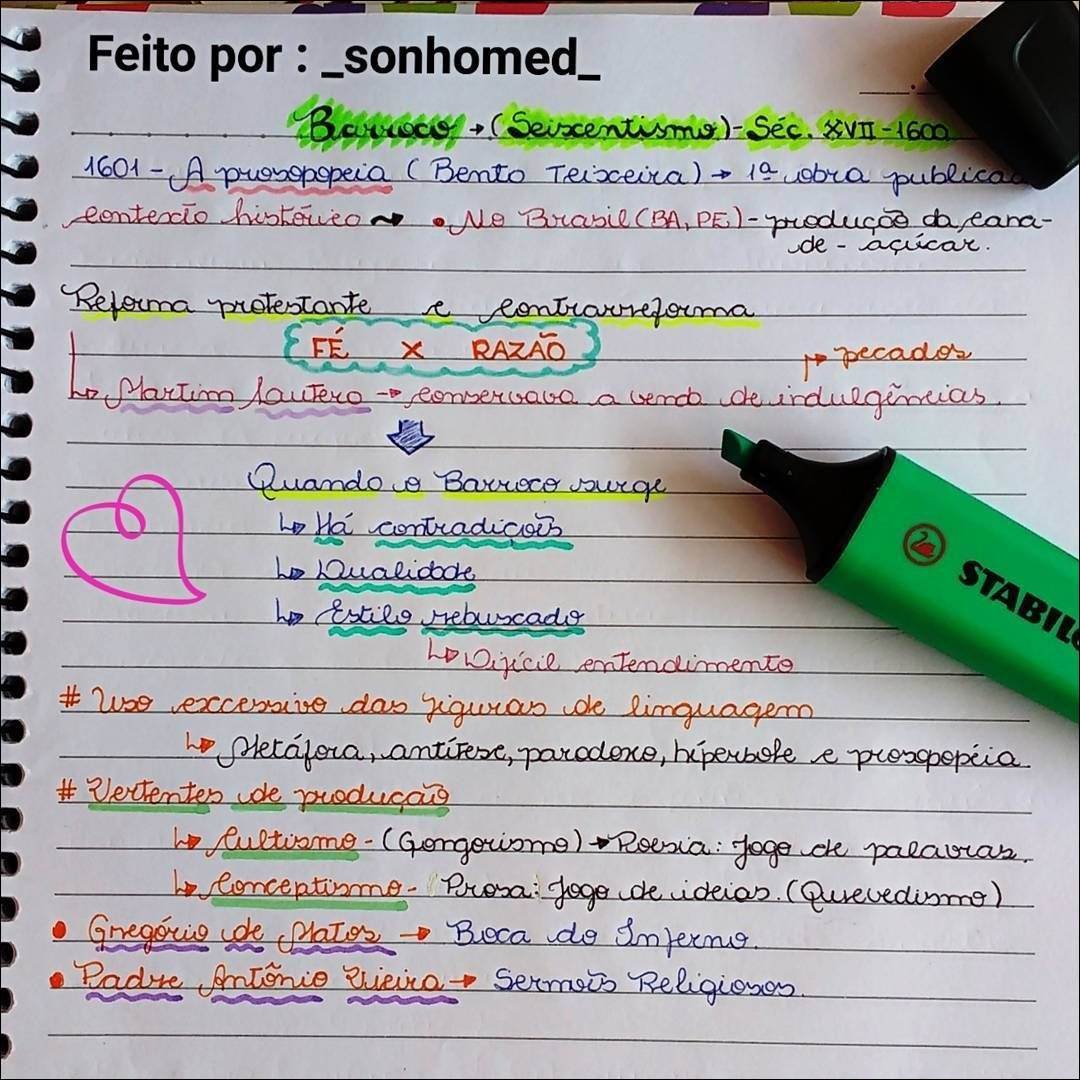 Feito por : _sonhomed_
Barroco → (Seiscentismo) - Séc. XVII - 1600
1601 - A prosopopeia (Bento Teixeira) → 1ª obra publica
contexto histórico → • No Brasil (BA, PE) - produção da cana-
de - açúcar.
Reforma protestante e contrarreforma
FÉ X RAZÃO
↱ pecados
↳ Martim Lautero → conservava a venda de indulgências.
Quando o Barroco surge
↳ Há contradições
↳ Dualidade
↳ Estilo rebuscado
↳ Difícil entendimento
# Uso excessivo das figuras de linguagem
↳ Metáfora, antítese, paradoxo, hipérbole e prosopopéia.
# Vertentes de produção
↳ Cultismo - (Gongorismo) → Poesia: Jogo de palavras.
↳ Conceptismo - Prosa: Jogo de ideias. (Quevedismo)
• Gregório de Matos → Boca do Inferno.
• Padre Antônio Vieira → Sermões Religiosos.
STABILO